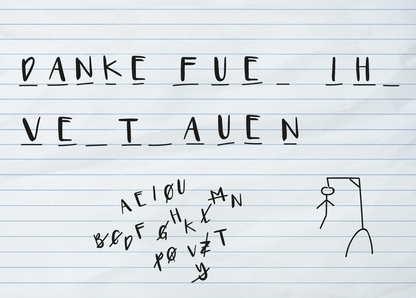 DANKE FUE_ IH_
VE_T_AUEN
A E I O U M N
B C D F G H K L
P O V Z T
Y